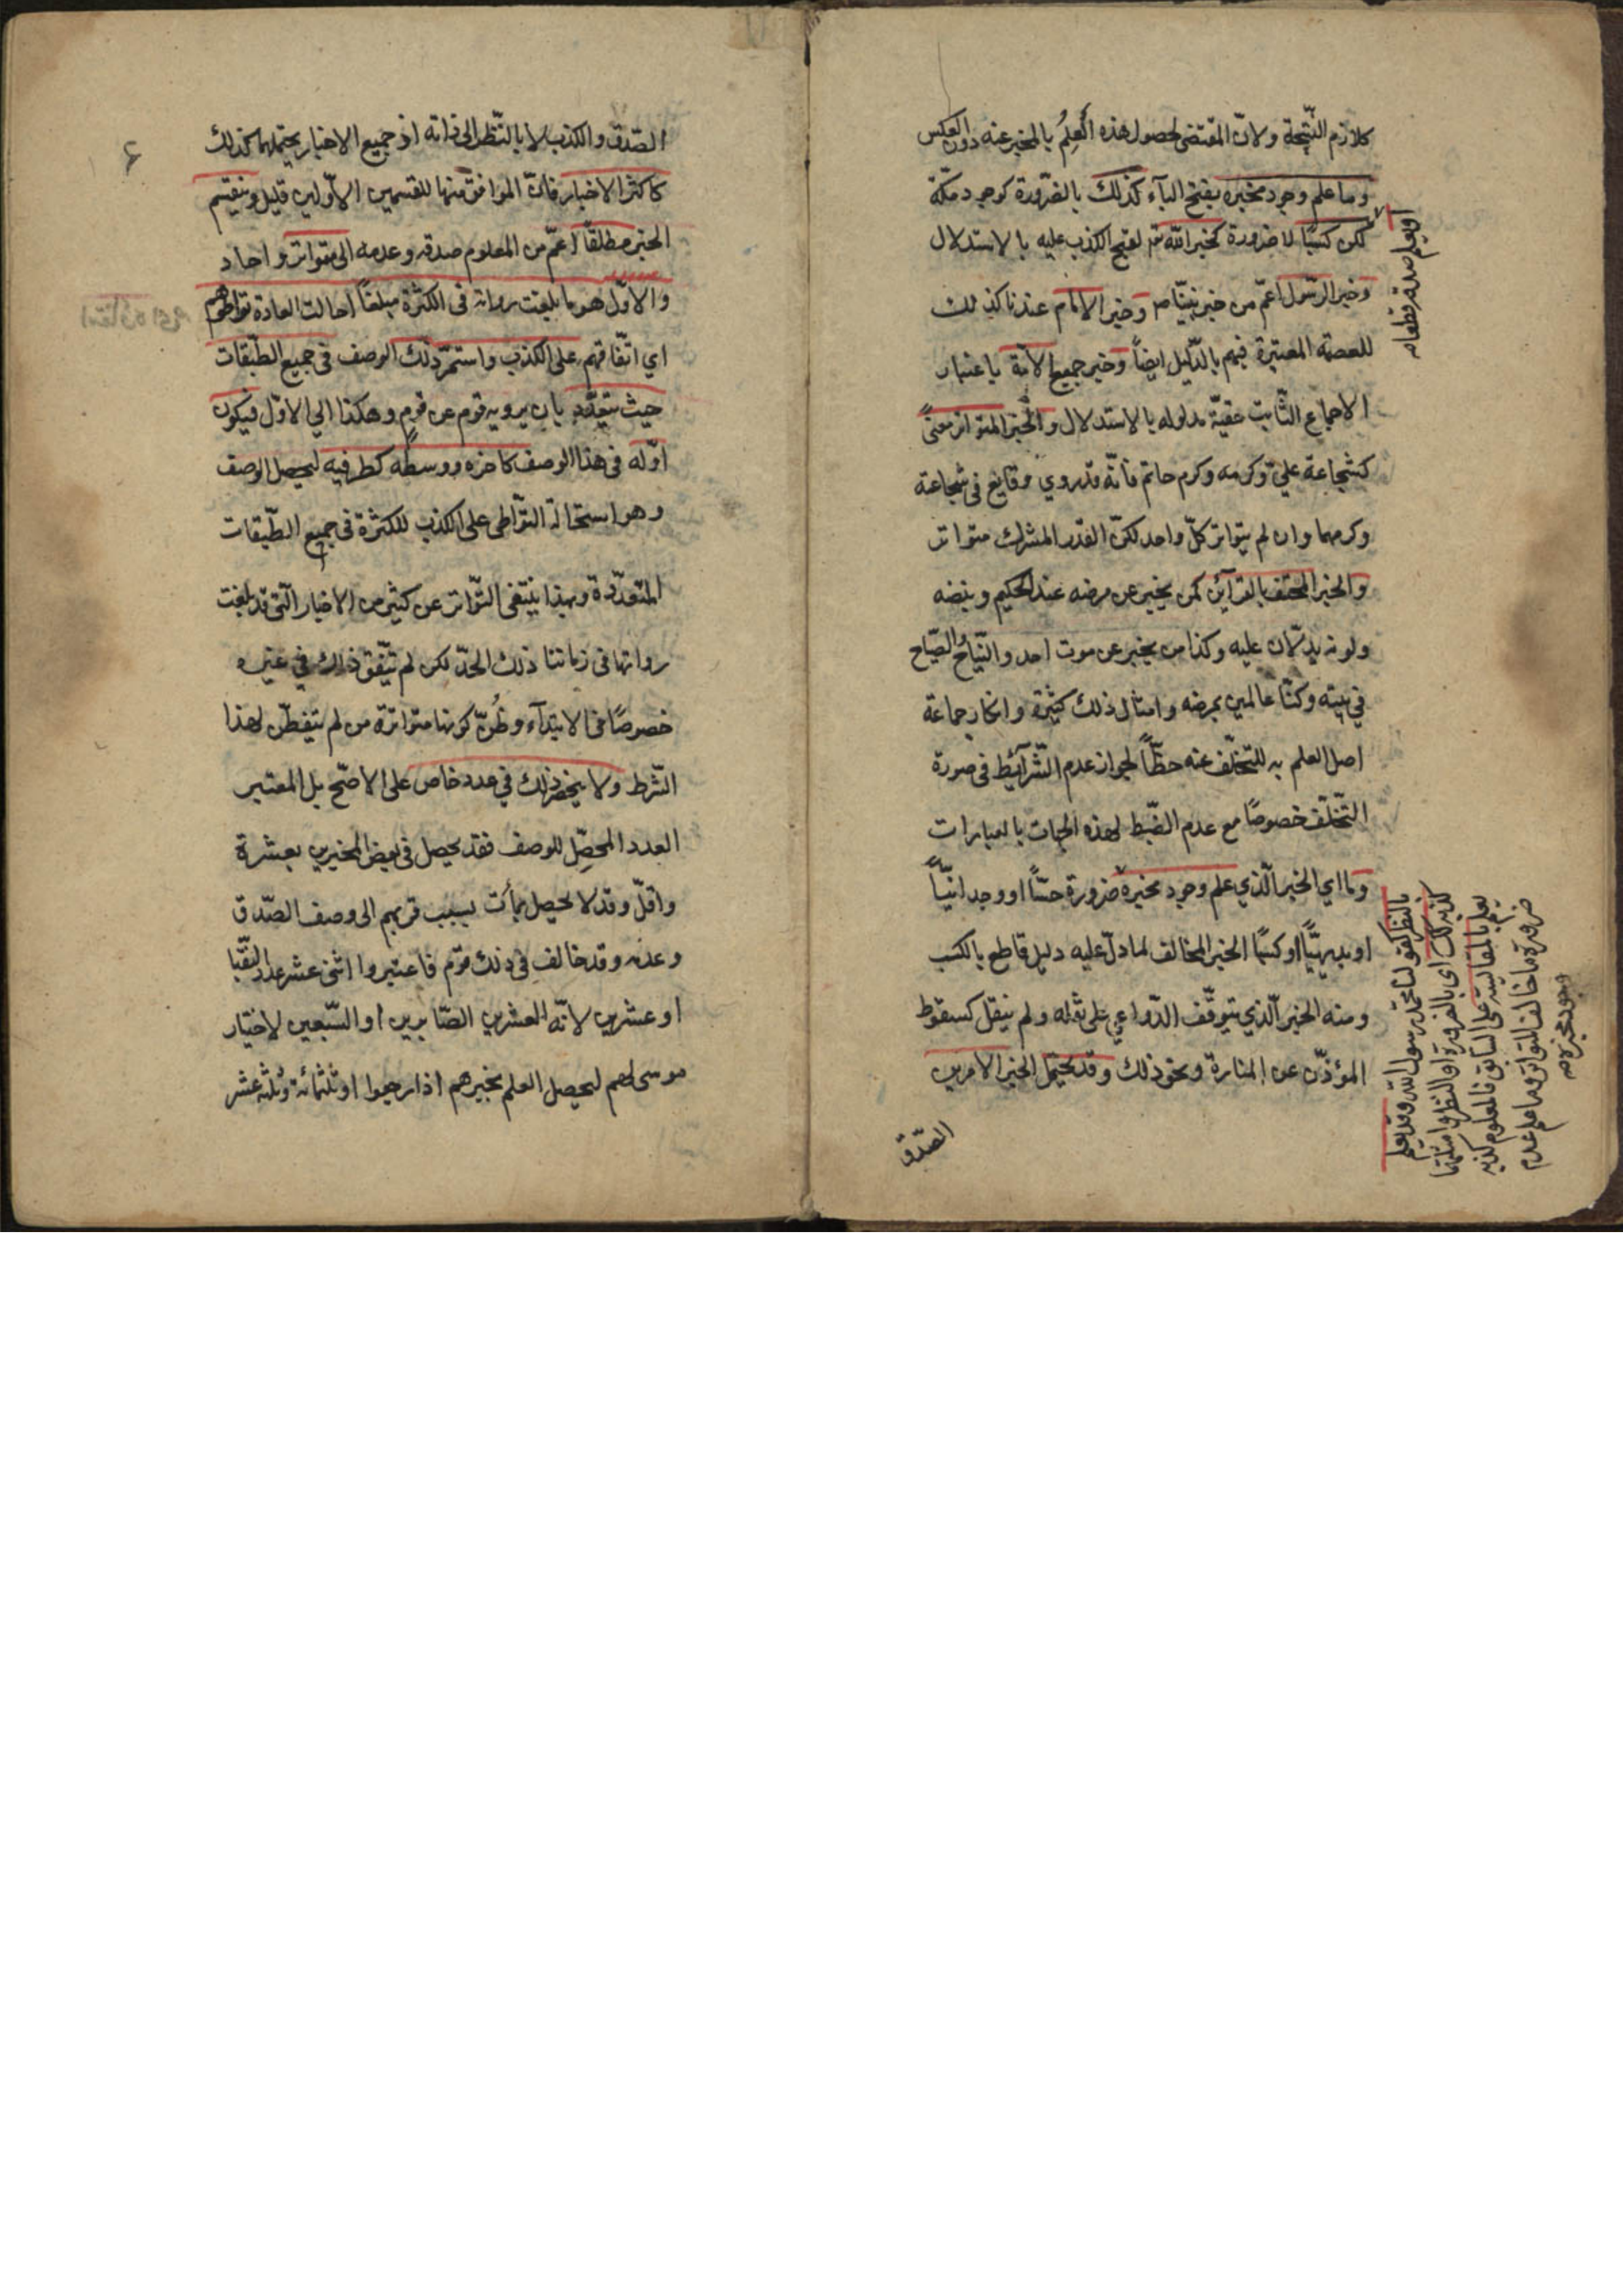 كلازم النتيجة ولانّ المقتضى لحصول هذه العلمُ بالمخبر عنه دون العكس
وما علم وجود مخبره بفتح الباء كذلك بالضّرورة كوجود مكّة
لكن كسبًا لا ضرورة كخبر الله تع لقبح الكذب عليه بالاستدلال
وخبر الرّسول اعمّ من خبر نبيّنا ص وخبر الامام عندنا كذلك
للعصمة المعتبرة فيهم بالدّليل ايضاً وخبر جميع الامّة باعتبار
الاجماع الثّابت حقيّة مدلوله بالاستدلال والخبر المتواتر معنىً
كشجاعة عليّ وكرمه وكرم حاتم فانّه قد روي وقايع في شجاعة
وكرمهما وان لم يتواتر كلّ واحد لكنّ القدر المشترك متواتر
والخبر المحتف بالقرآئن كمن يخبر عن مرضه عند الحكيم ونبضه
ولونه يدلّان عليه وكذا من يخبر عن موت احد والنّياح الصّياح
في بيته وكنّا عالمين بمرضه وامثال ذلك كثيرة وانكار جماعة
اصل العلم به للتخلّف عنه خطأً لجواز عدم الشّرآئط في صورة
التّخلّف خصوصًا مع عدم الضّبط لهذه الجهات بالعبارات
وما اي الخبر الّذي علم وجود مخبره ضرورة حسّاً او وجدانيّاً
او بديهيًّا او كسبًا الخبر المخالف لما دلّ عليه دليل قاطع بالكسب
ومنه الخبر الّذي يتوفّف الدّواعي على نقله ولم ينقل كسقوط
المؤذّن عن المنارة ونحو ذلك وقد يحتمل الخبر الامرين
الصّدق
او يعلم صدقه قطعا
بالنظر كقولنا محمّد رسول الله وقد يعلم
كذبه كك اى بالضرورة او النظر وامثلتها
يعلم بالمقايسة على السابق فالمعلوم كذبه
ضرورة ما خالف المتواتر وما علم عدم
وجود مخبره
٤
الصّدق والكذب لا بالنّظر الى ذاته اذ جميع الاخبار يحتملهما كذلك
كاكثر الاخبار فانّ الموافق منها للقسمين الاوّلين قليل وينقسم
الخبر مطلقاً اعمّ من المعلوم صدقه وعدمه الى متواتر واحاد
والاوّل هو ما بلغت رواته في الكثرة مبلغاً احالت العادة تواطؤهم
اي اتّفاقهم على الكذب واستمرّ ذلك الوصف في جميع الطّبقات
حيث يتعدّد بان يرويه قوم عن قوم وهكذا الى الاوّل فيكون
اوّله في هذا الوصف كاخره ووسطه كطرفيه ليحصل الوصف
وهو استحالة التواطى على الكذب للكثرة في جميع الطّبقات
المتعدّدة وبهذا ينتفى التّواتر عن كثير من الاخبار الّتي قد بلغت
رواتها في زماننا ذلك الحدّ لكن لم يتّفق ذلك في غيره
خصوصًا في الابتدآء وظُنّ كونها متواترة من لم يتفطّن لهذا
الشّرط ولا ينحصر ذلك في عدد خاص على الاصّح بل المعتبر
العدد المحصّل للوصف فقد يحصل في بعض المخبرين بعشرة
واقلّ وقد لا يحصل بمأت بسبب قربهم الى وصف الصّدق
وعدمه وقد خالف في ذلك قوم فاعتبروا اثنى عشر عدد النقبا
او عشرين لآية العشرين الصّابرين او السّبعين لاختيار
موسى لهم ليحصل العلم بخبرهم اذا رجعوا او ثلثمائة وثلثة عشر